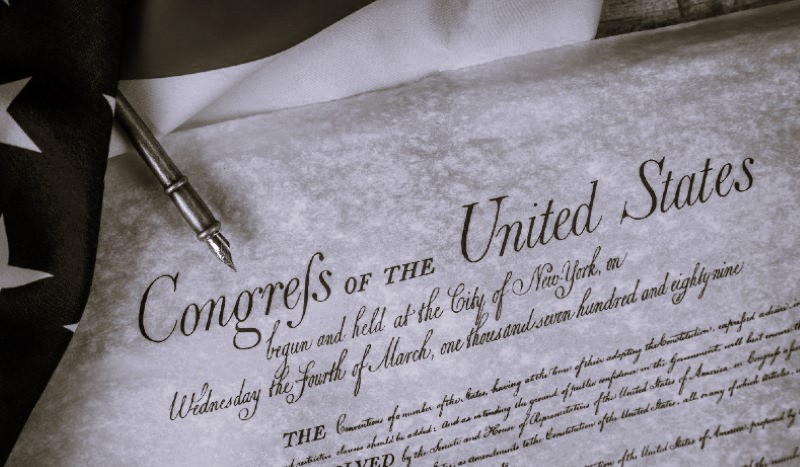 Congreſs OF THE United States
begun and held at the City of New-York, on
Wednesday the Fourth of March, one thousand seven hundred and eighty nine
THE Conventions of a number of the States, having at the time of their adopting the Constitution, expressed a desire in
restrictive clauses should be added: And as extending the ground of public confidence in the Government, will best ensure
by the Senate and House of Representatives of the United States of America, in Congress
as amendments to the Constitution of the United States, all, or any of which articles,
of the United States of America, proposed by